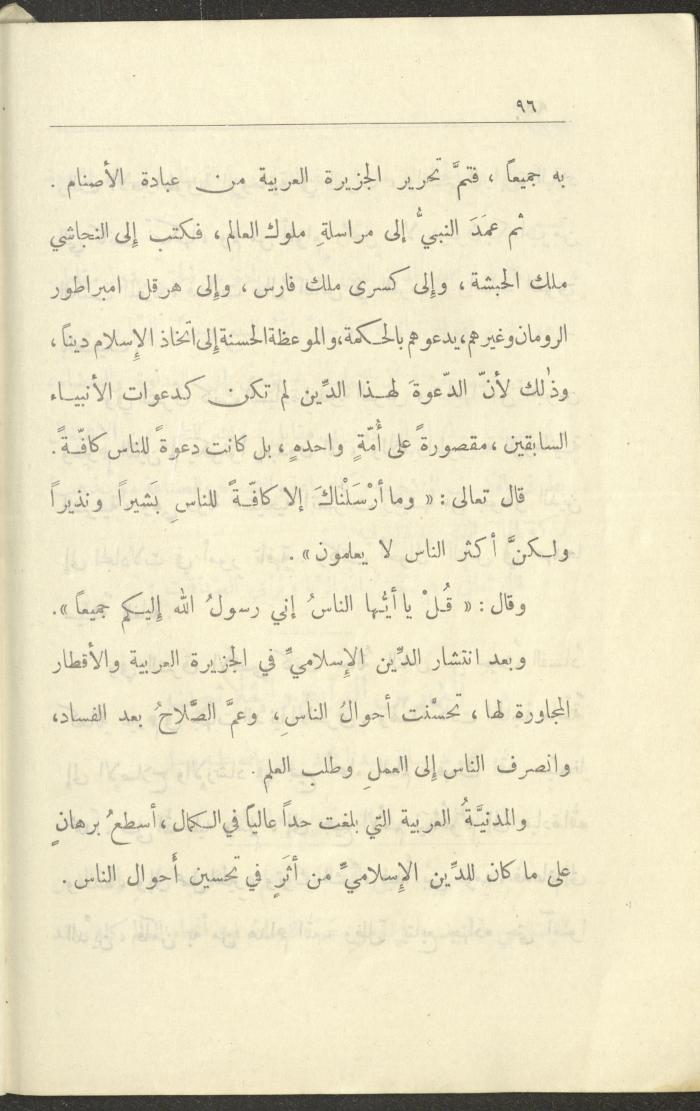 ٩٦
به جميعاً ، فتمَّ تحرير الجزيرة العربية من عبادة الأصنام .
ثم عمَدَ النبيُّ إلى مراسلةِ ملوك العالم ، فكتب إلى النجاشي
ملك الحبشة ، وإلى كسرى ملك فارس ، وإلى هرقل امبراطور
الرومان وغيرهم ، يدعوهم بالحكمة ، والموعظة الحسنة إلى اتخاذ الإسلام ديناً ،
وذٰلك لأنّ الدّعوةَ لهذا الدِّين لم تكن كدعوات الأنبياء
السابقين ، مقصورةً على أُمّةٍ واحدهٍ ، بل كانت دعوةً للناس كافّةً .
قال تعالى : « وما أرْسَلْناكَ إلا كافّةً للناسِ بَشيراً ونذيراً
ولكنَّ أكثر الناس لا يعلمون » .
وقال : « قُلْ يا أيُّها الناسُ إني رسولُ الله إليكم جميعاً » .
وبعد انتشار الدِّين الإسلاميِّ في الجزيرة العربية والأقطار
المجاورة لها ، تحسّنت أحوالُ الناسِ ، وعمَّ الصَّلاحُ بعد الفساد ،
وانصرف الناس إلى العملِ وطلب العلم .
والمدنيَّةُ العربية التي بلغت حداً عالياً في الكمال ، أسطعُ برهانٍ
على ما كان للدِّين الإسلاميِّ من أثَرٍ في تحسين أحوال الناس .